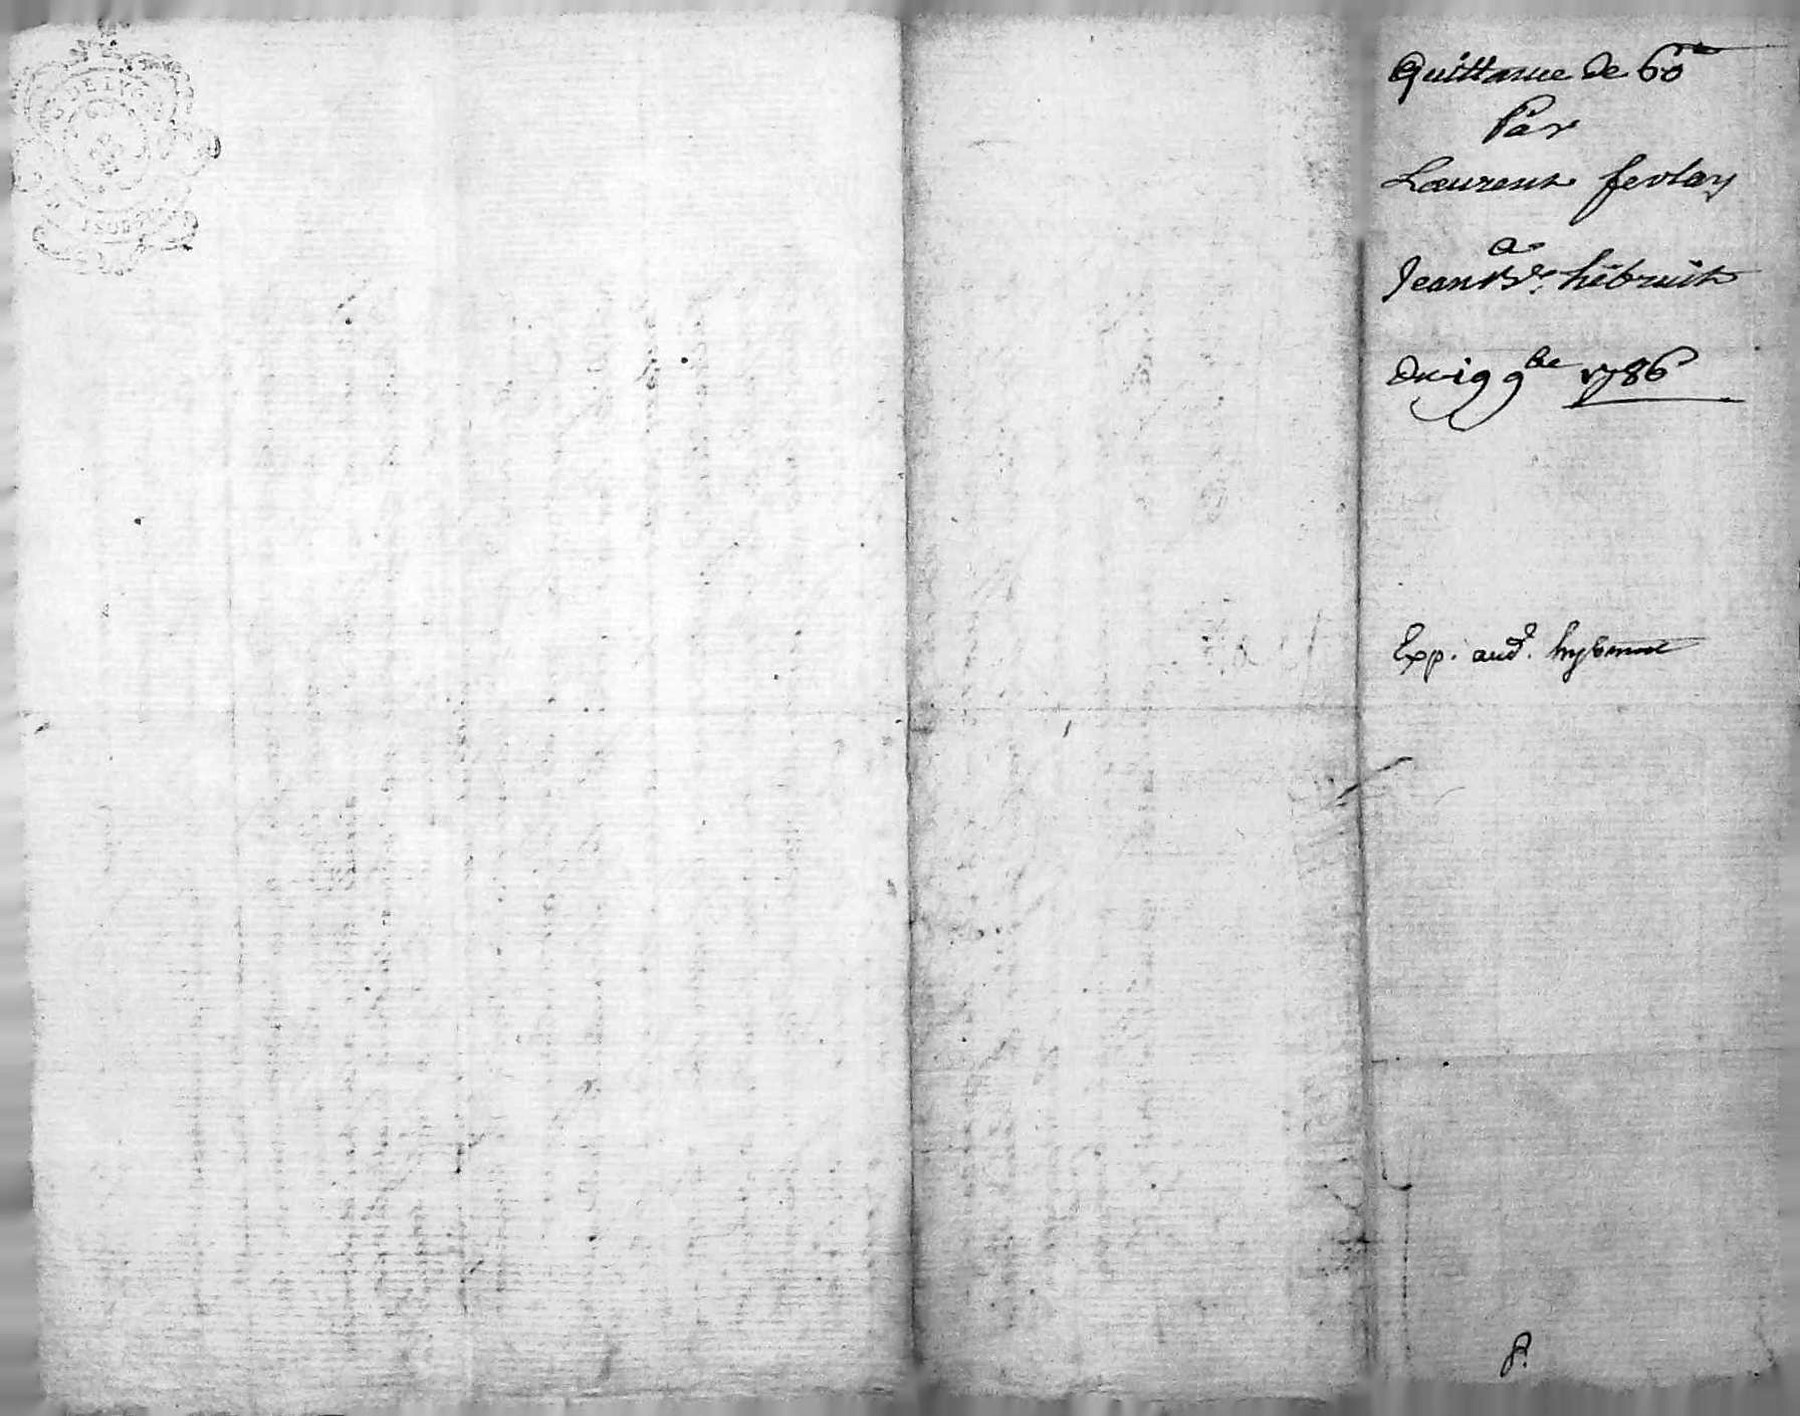 Quittance de 60#
Par
Laurent ferlay
a
Jean Bte. hébruit
du 19 9bre 1786
Exp. aud.